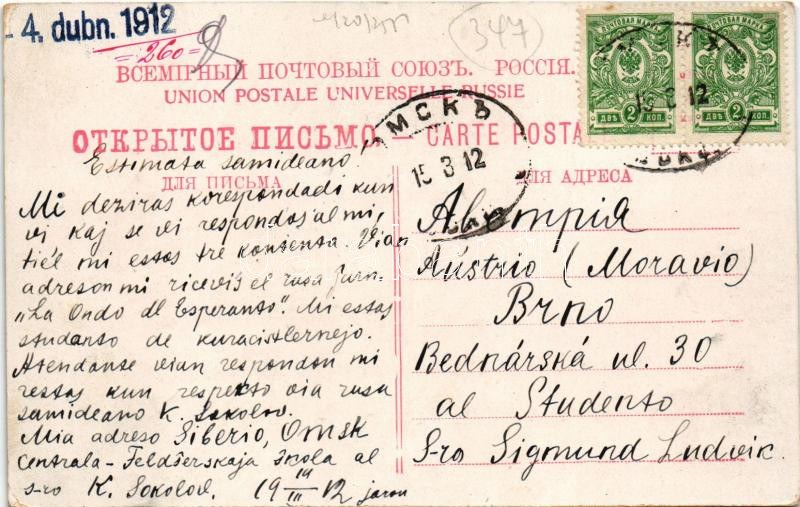 - 4. dubn. 1912
= 260 =
347
ВСЕМІРНЫЙ ПОЧТОВЫЙ СОЮЗЪ. РОССІЯ.
UNION POSTALE UNIVERSELLE. RUSSIE
ОТКРЫТОЕ ПИСЬМО — CARTE POSTA
ДЛЯ ПИСЬМА
ДЛЯ АДРЕСА
ПОЧТОВАЯ МАРКА
2 2
ДВѢ КОП.
ПОЧТОВАЯ МАРКА
2 2
ДВѢ КОП.
15 3 12
ОМСКЪ
15 3 12
Estimata samideano!
Mi deziras korespondadi kun
vi kaj se vi respondos al mi,
tiel mi estos tre kontenta. Vian
adreson mi ricevis el rusa ĵurn-
„La Ondo de Esperanto". Mi estas
studanto de kuracistlernejo.
Atendante vian respondon mi
restas kun respekto via rusa
samideano K. Sokolov.
Mia adreso Siberio, Omsk
Centrala-Feldŝerskaja ŝkola al
s-ro K. Sokolov. 19 19/III 12 jaron
Aŭstrio (Moravio)
Brno
Bednárská ul. 30
al Studento
S-ro Sigmund Ludvik.